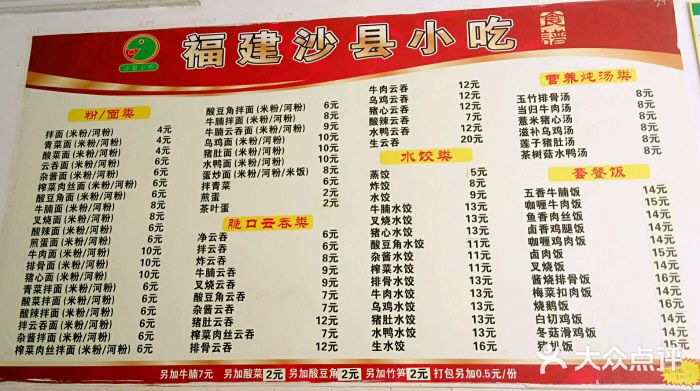 福建沙县小吃
食谱
沙县小吃
粉/面类
拌面(米粉/河粉) 4元
青菜面(米粉/河粉) 4元
酸菜面(米粉/河粉) 6元
云吞面(米粉/河粉) 6元
杂酱面(米粉/河粉) 6元
榨菜肉丝面(米粉/河粉) 6元
酸豆角面(米粉/河粉) 6元
牛腩面(米粉/河粉) 8元
叉烧面(米粉/河粉) 8元
酸辣面(米粉/河粉) 6元
煎蛋面(米粉/河粉) 6元
牛肉面(米粉/河粉) 10元
排骨面(米粉/河粉) 10元
猪心面(米粉/河粉) 10元
青菜拌面(米粉/河粉) 6元
酸菜拌面(米粉/河粉) 6元
酸辣拌面(米粉/河粉) 6元
拌云吞面(米粉/河粉) 6元
杂酱拌面(米粉/河粉) 6元
榨菜肉丝拌面(米粉/河粉) 6元
酸豆角拌面(米粉/河粉) 6元
牛腩拌面(米粉/河粉) 8元
牛腩云吞面(米粉/河粉) 9元
乌鸡面(米粉/河粉) 10元
猪肚面(米粉/河粉) 10元
水鸭面(米粉/河粉) 10元
蛋炒面(米粉/河粉/米饭) 8元
拌青菜 6元
煎蛋 2元
茶叶蛋 2元
脆口云吞类
净云吞 6元
拌云吞 6元
炸云吞 8元
牛腩云吞 9元
叉烧云吞 9元
酸豆角云吞 7元
杂酱云吞 7元
猪肚云吞 12元
榨菜肉丝云吞 7元
排骨云吞 12元
牛肉云吞 12元
乌鸡云吞 12元
猪心云吞 12元
酸辣云吞 7元
水鸭云吞 12元
生云吞 20元
水饺类
蒸饺 5元
炸饺 8元
水饺 9元
牛腩水饺 13元
叉烧水饺 13元
猪心水饺 13元
酸豆角水饺 11元
杂酱水饺 11元
榨菜水饺 11元
排骨水饺 13元
牛肉水饺 13元
乌鸡水饺 13元
猪肚水饺 13元
水鸭水饺 13元
生水饺 16元
营养炖汤类
玉竹排骨汤 8元
当归牛肉汤 8元
薏米猪心汤 8元
滋补乌鸡汤 8元
莲子猪肚汤 8元
茶树菇水鸭汤 8元
套餐饭
五香牛腩饭 14元
咖喱牛肉饭 15元
鱼香肉丝饭 14元
卤香鸡腿饭 14元
咖喱鸡肉饭 14元
卤肉饭 15元
叉烧饭 14元
酱烧排骨饭 16元
梅菜扣肉饭 14元
烧鹅饭 15元
白切鸡饭 14元
冬菇滑鸡饭 14元
猪扒饭 15元
另加牛腩7元 另加酸菜2元 另加酸豆角2元 另加竹笋2元 打包另加0.5元/份
大众点评